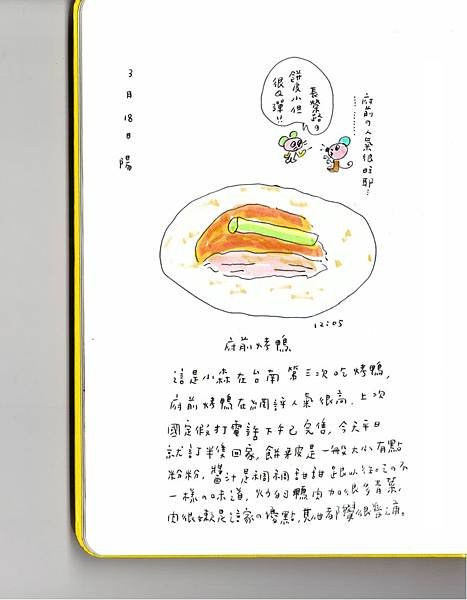 3月18日 陽
府前の人氣很旺耶…
長榮路の
餅皮小但
很Q彈!!
12:05
府前烤鴨
這是小森在台南第三次吃烤鴨,
府前烤鴨在台南評人氣很高,上次
國定假打電話下午已完售,今天平日
就訂半隻回家,餅皮是一般大小有點
粉粉,醬汁是稠稠甜甜跟以往吃の不
一樣の味道,炒的鴨肉加很多青菜,
肉很嫩是這家の優點,其他都覺很普通。